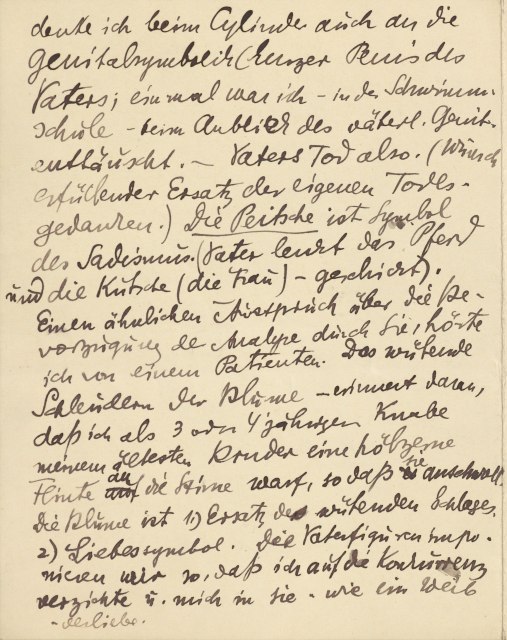 denke ich beim Cylinder auch an die
Genitalsymbolik (kurzer Penis des
Vaters; einmal war ich - in der Schwimm-
schule - beim Anblick des väterl. Genit.
enttäuscht. - Vaters Tod also. (Wunsch
erfüllender Ersatz der eigenen Todes-
gedanken.) Die Peitsche ist Symbol
des Sadismus. (Vater lenkt das Pferd
und die Kutsche (die Frau) - geschickt).
Einen ähnlichen Ausspruch über die Be-
vorzugung der Analyse durch Sie, hörte
ich von einem Patienten. Das wütende
Schleudern der Blume - erinnert daran,
daß ich als 3 oder 4 jähriger Knabe
meinem ältesten Bruder eine hölzerne
Flinte an die Stirne warf, so daß sie anschwoll.
Die Blume ist 1.) Ersatz des wütenden Schlages.
2.) Liebessymbol. Die Vaterfiguren impo-
nieren mir so, daß ich auf die Konkurrenz
verzichte u. mich in sie - wie ein Weib
- verliebe.